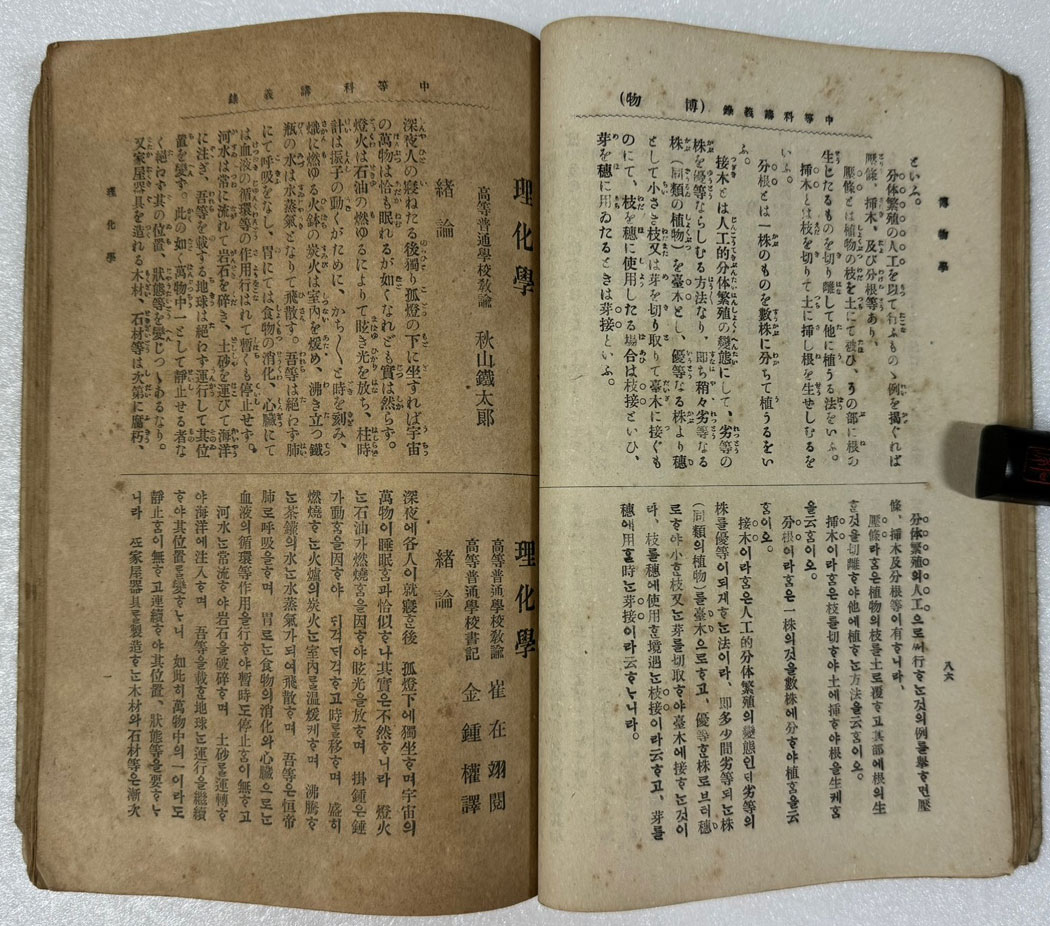 中等科講義錄(博物)
博物學
八六
といふ。
分体繁殖の人工を以て行ふものゝ例を揭ぐれば
壓條、揷木、及び分根等あり、
壓條とは植物の枝を土にて被ひ、その部に根の
生じたるものを切り離して他に植うる法をいふ。
揷木とは枝を切りて土に揷し根を生ぜしむるを
いふ。
分根とは一株のものを數株に分ちて植うるをい
ふ。
接木とは人工的分体繁殖の變態にして、劣等の
株を優等ならしむる方法なり、卽ち稍々劣等なる
株(同類の植物)を臺木とし、優等なる株より穗
として小さき枝又は芽を切り取りて臺木に接ぐも
のにて、枝を穗に使用したる塲合は枝接といひ、
芽を穗に用ゐたるときは芽接といふ。
分体繁殖의人工으로써行ᄒᆞᄂᆞᆫ것의例를擧ᄒᆞ면壓
條、揷木及分根等이有ᄒᆞ니라、
壓條라홈은植物의枝를土로覆ᄒᆞ고其部에根의生
ᄒᆞᆫ것을切離ᄒᆞ야他에植ᄒᆞᄂᆞᆫ方法을云홈이오。
揷木이라홈은枝를切ᄒᆞ야土에揷ᄒᆞ야根을生케홈
을云홈이오。
分根이라홈은一株의것을數株에分ᄒᆞ야植홈을云
홈이오。
接木이라홈은人工的分体繁殖의變態인ᄃᆡ劣等의
株를優等이되게ᄒᆞᄂᆞᆫ法이라、卽多少間劣等되ᄂᆞᆫ株
(同類의植物)를臺木으로ᄒᆞ고、優等ᄒᆞᆫ株로브터穗
로ᄒᆞ야小ᄒᆞᆫ枝又ᄂᆞᆫ芽를切取ᄒᆞ야臺木에接ᄒᆞᄂᆞᆫ것이
라、枝를穗에使用ᄒᆞᆫ境遇ᄂᆞᆫ枝接이라云ᄒᆞ고、芽를
穗에用ᄒᆞᆯ時ᄂᆞᆫ芽接이라云ᄒᆞᄂᆞ니라。
中等科講義錄
理化學
高等普通學校敎諭 秋山鐵太郎
緖論
深夜人の寢ねたる後獨り孤燈の下に坐すれば宇宙
の萬物は恰も眠れるが如くなれども實は然らす。
燈火は石油の燃ゆるによりて眩き光を放ち、柱時
計は振子の動くがために、かち〱と時を刻み、
熾に燃ゆる火鉢の炭火は室內を煖め、沸き立つ鐵
瓶の水は水蒸氣となりて飛散す。吾等は絕わす肺
にて呼吸をなし、胃にては食物の消化、心臟にて
は血液の循環等の作用行はれて暫くも停止せす。
河水は常に流れて岩石を碎き、土砂を運びて海洋
に注ぎ、吾等を載する地球は絕わず運行して其位
置を變ず。此の如く萬物中一として靜止せる者な
く絕わす其の位置、狀態等を變じつゝあるなり。
又家屋器具を造れる木材、石材等は次第に腐朽、
理化學
高等普通學校敎諭 崔在翊閱
高等普通學校書記 金鍾權譯
緖論
深夜에各人이就寢ᄒᆞᆫ後 孤燈下에獨坐ᄒᆞ며宇宙의
萬物이睡眠홈과恰似ᄒᆞ나其實은不然ᄒᆞ니라 燈火
ᄂᆞᆫ石油가燃燒홈을因ᄒᆞ야眩光을放ᄒᆞ며 掛鍾은鍾
가動홈을因ᄒᆞ야 ᄯᅬ걱ᄯᅬ걱ᄒᆞ고時를移ᄒᆞ며 盛히
燃燒ᄒᆞᄂᆞᆫ火爐의炭火ᄂᆞᆫ室內를溫煖케ᄒᆞ며 沸騰ᄒᆞ
ᄂᆞᆫ茶鑵의水ᄂᆞᆫ水蒸氣가되여飛散ᄒᆞ며 吾等은恒常
肺로呼吸을ᄒᆞ며 胃로ᄂᆞᆫ食物의消化와心臟으로ᄂᆞᆫ
血液의循環等作用을行ᄒᆞ야暫時도停止홈이無ᄒᆞ고
河水ᄂᆞᆫ常流ᄒᆞ야岩石을破碎ᄒᆞ며 土砂를運轉ᄒᆞ
야海洋에注入ᄒᆞ며 吾等을載ᄒᆞᆫ地球ᄂᆞᆫ運行을繼續
ᄒᆞ야其位置를變ᄒᆞᄂᆞ니 如此히萬物中의一이라도
靜止홈이無ᄒᆞ고連續ᄒᆞ야其位置、狀態等을變ᄒᆞᄂᆞ
니라 ᄯᅩ家屋器具를製造ᄒᆞᄂᆞᆫ木材와石材等은漸次
理化學
一